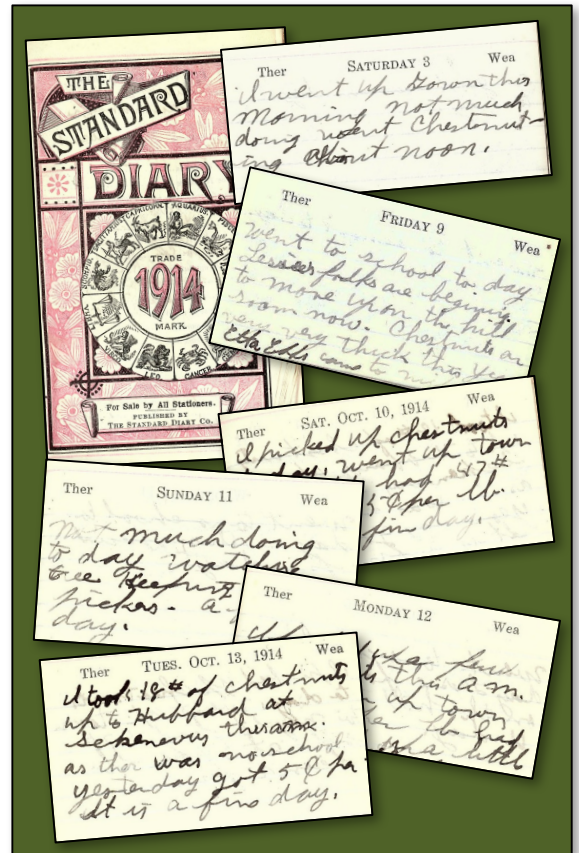 THE
STANDARD
DIARY
SAGITTARIUS CAPRICORN AQUARIUS
TRADE
1914
MARK
LEO
CANCER
For Sale by All Stationers.
PUBLISHED BY
THE STANDARD DIARY CO.
Ther SATURDAY 3 Wea
I went up town this
morning not much
doing went Chestnut-
ing about noon.
Ther FRIDAY 9 Wea
Went to school to day
folks are begining
to move upon the hill
room now. Chestnuts ar
very very thick this year
Etta Edds came to
Ther SAT. OCT. 10, 1914 Wea
I picked up chestnuts
day. went up town
had 47#
5¢ per lb.
fin day.
Ther SUNDAY 11 Wea
Not much doing
to day watching
tree Keeping
pickers. a
day.
Ther MONDAY 12 Wea
few
this a.m.
up town
lb
a little
Ther TUES. OCT. 13, 1914 Wea
I took 18# of chestnuts
up to Hubbard at
this a.m.
as ther was no school
yesterday got 5¢ per
It is a fine day.